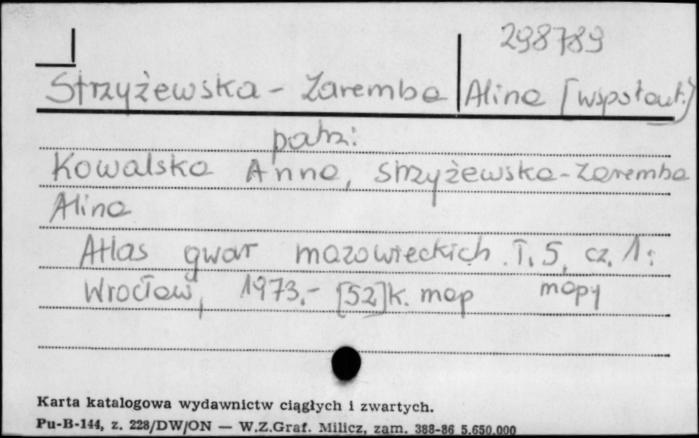 298789
Strzyżewska - Zaremba Alina [współaut.]
patrz:
Kowalska Anna, Strzyżewska-Zaremba
Alina
Atlas gwar mazowieckich. T. 5, cz. 1:
Wrocław, 1973.- [52]k. map mapy
Karta katalogowa wydawnictw ciągłych i zwartych.
Pu-B-144, z. 228/DW/ON — W.Z.Graf. Milicz, zam. 388-86 5.650.000